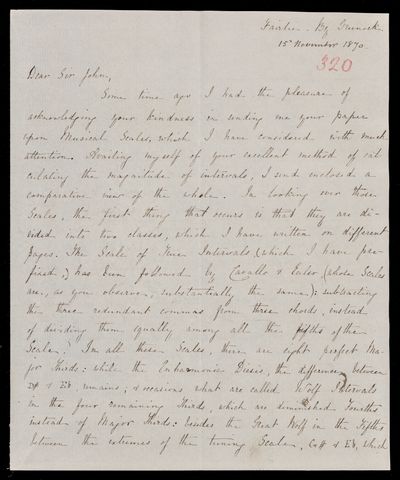 Fairlie - By Greenock
15th November 1870
320
Dear Sir John,
Some time ago I had the pleasure of
acknowledging your kindness in sending me your paper
upon Musical Scales, which I have considered with much
attention. Availing myself of your excellent method of cal-
culating the magnitude of intervals, I send enclosed a
comparative view of the whole. In looking over those
Scales, the first thing that occurs is that they are di-
vided into two classes, which I have written on different
pages. The Scale of True Intervals, (which I have pre-
fixed,) has been followed by Cavallo & Euler (whose Scales
are, as you observe, substantially the same): subtracting
the three redundant commas from three chords, instead
of dividing them equally among all the fifths of the
Scale. In all these Scales, there are eight perfect Ma-
jor Thirds; while the Enharmonic Diesis, the difference between
& Eb remains, & occasions what are called Wolf Intervals
in the four remaining Thirds, which are diminished Fourths
instead of Major Thirds: besides the Great Wolf in the Fifths
between the extremes of the tuning Scale, G# & Eb, which